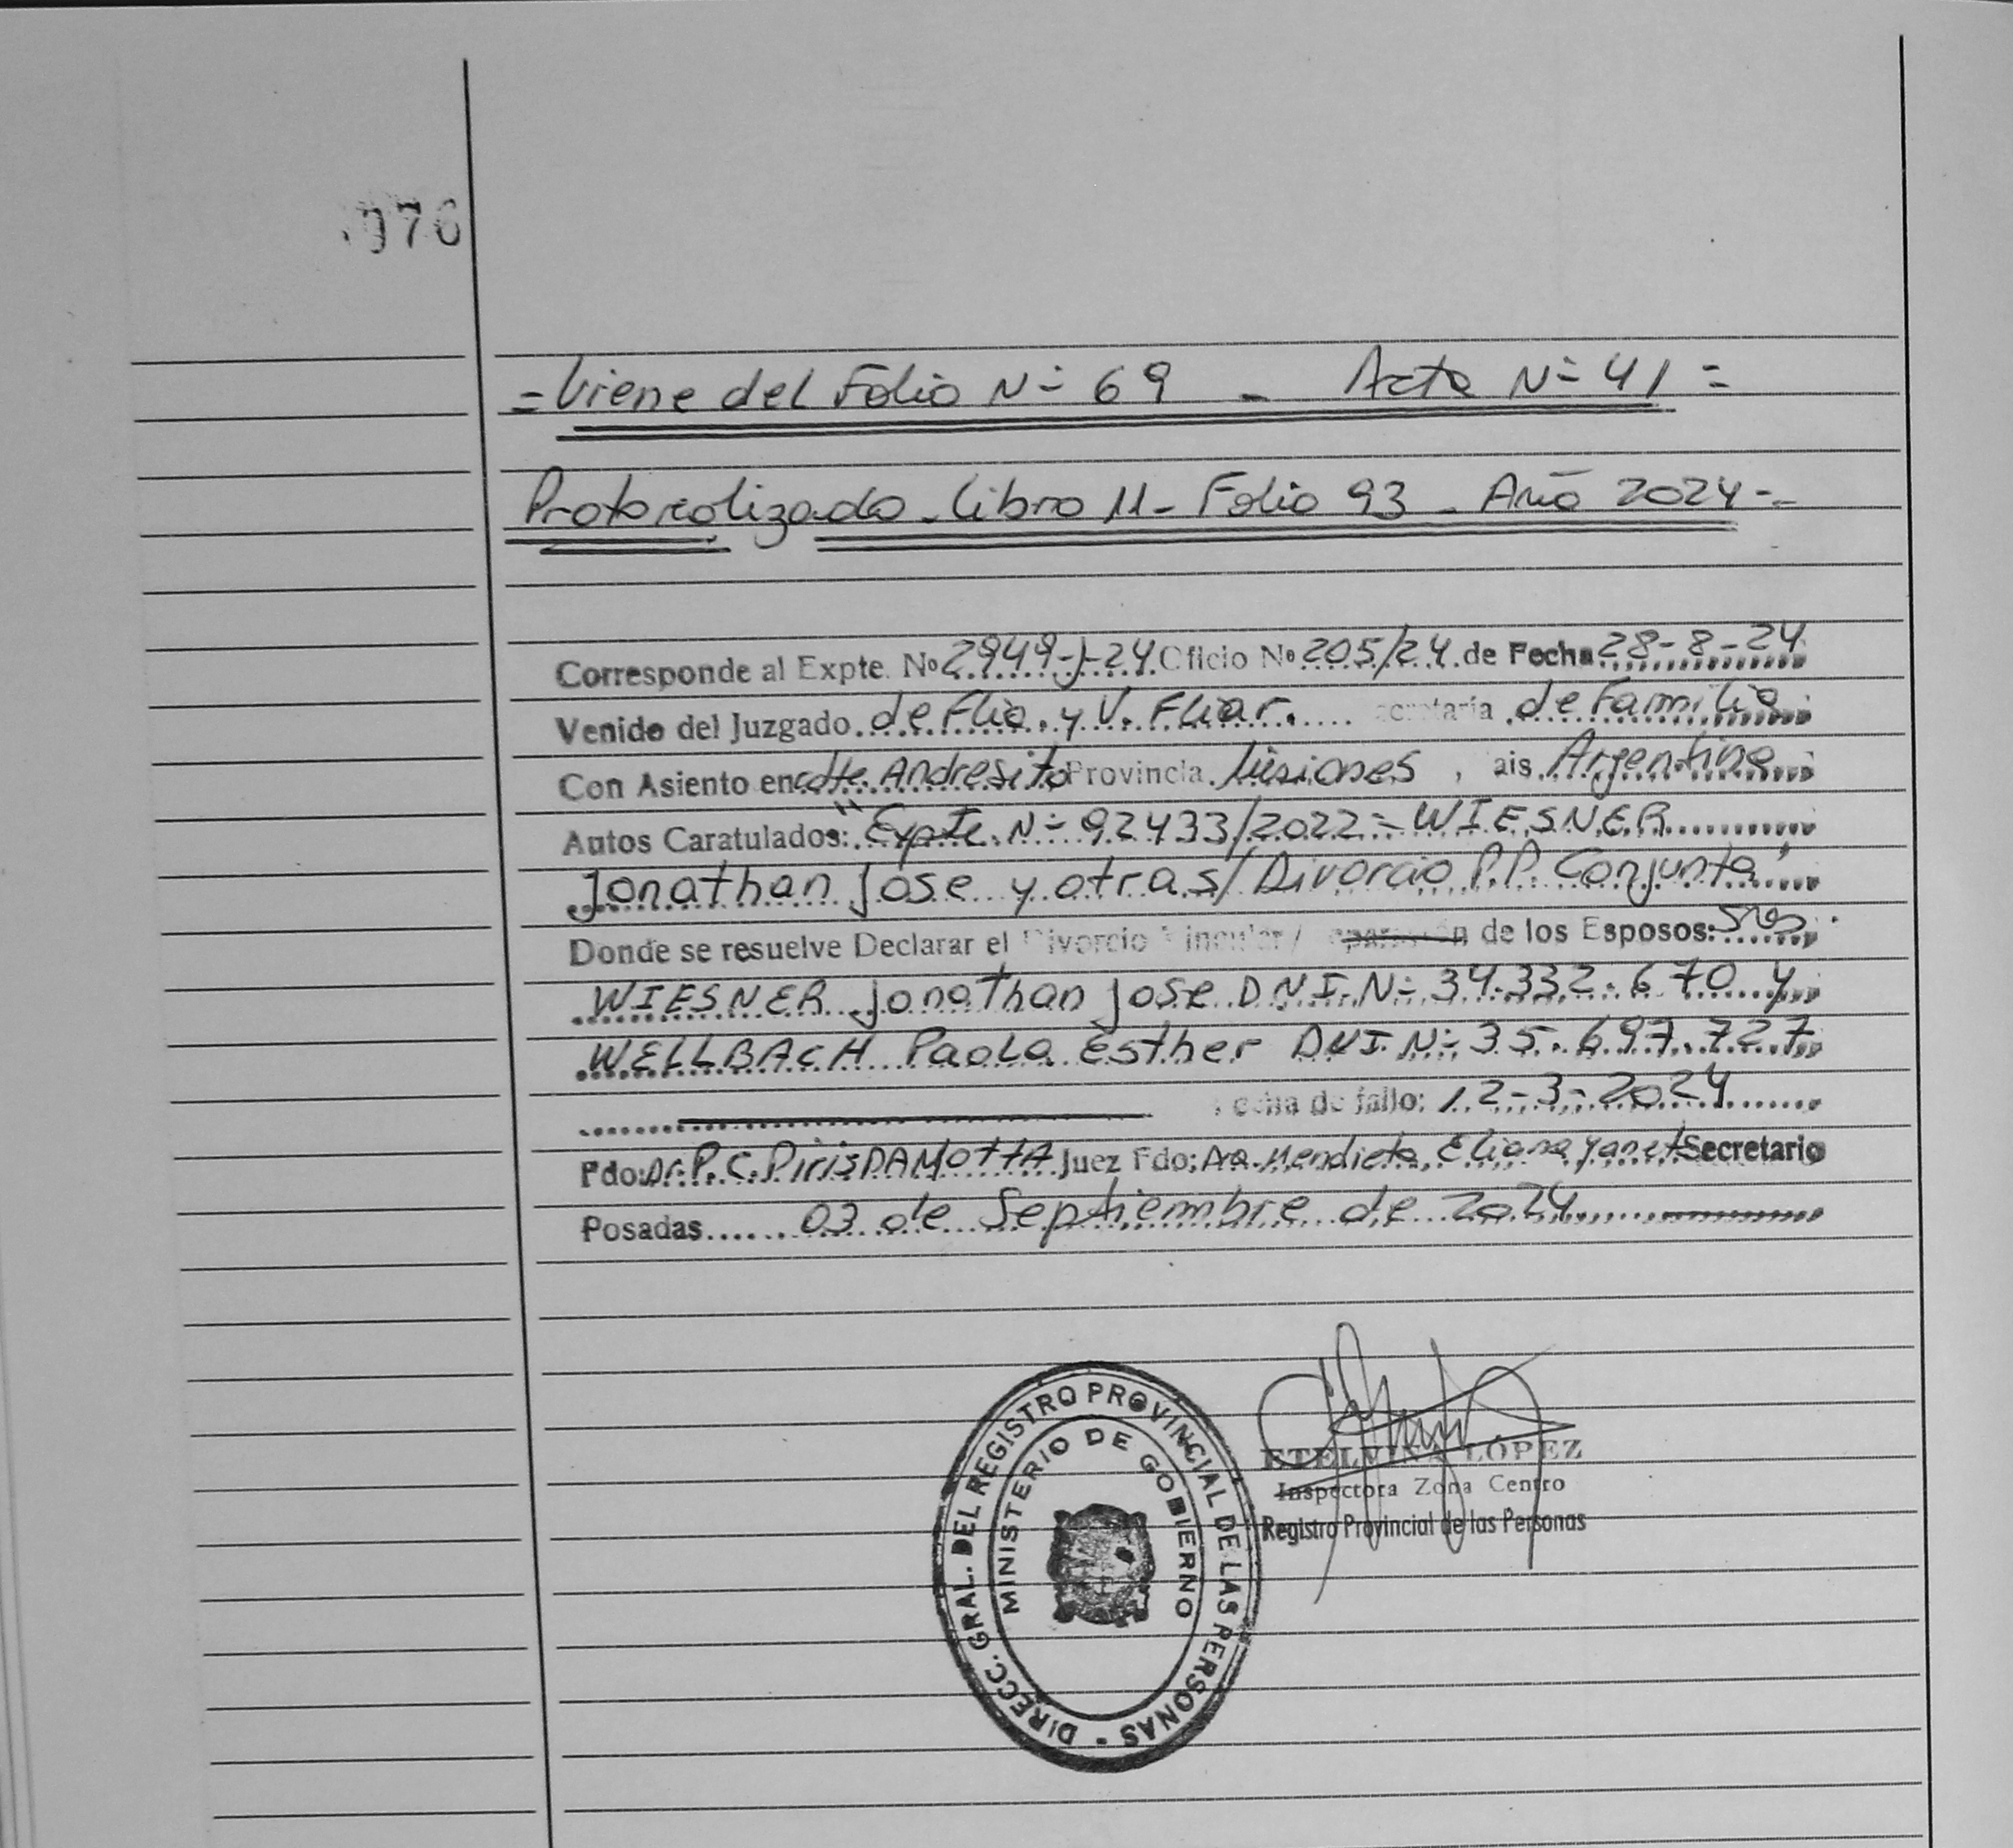 076
= Viene del Folio N= 69 - Acta N= 41 =
Protocolizado - Libro 11 - Folio 93 - Año 2024 =-
Corresponde al Expte. Nº 2949-J-24 Oficio Nº 205/24 de Fecha 28-8-24
Venido del Juzgado de Flia. y V. Fliar. Secretaría de Familia
Con Asiento en cdte. Andresito Provincia Misiones, País Argentina
Autos Caratulados: "Expte. N= 92433/2022 = WIESNER
Jonathan Jose y otra s/ Divorcio P.P. Conjunta"
Donde se resuelve Declarar el Divorcio Vincular / Separación de los Esposos: Sres.
WIESNER Jonathan Jose D.N.I. N= 34.332.670 y
WELLBACH Paola Esther DNI N= 35.697.727
Fecha de fallo: 12-3-2024
Fdo: Dr. P. C. Piris DA MOTTA Juez Fdo: Dra. Mendieta, Eliana Yanet Secretario
Posadas 03 de Septiembre de 2024
DIRECC. GRAL. DEL REGISTRO PROVINCIAL DE LAS PERSONAS -
MINISTERIO DE GOBIERNO
ETELVINA LÓPEZ
Inspectora Zona Centro
Registro Provincial de las Personas